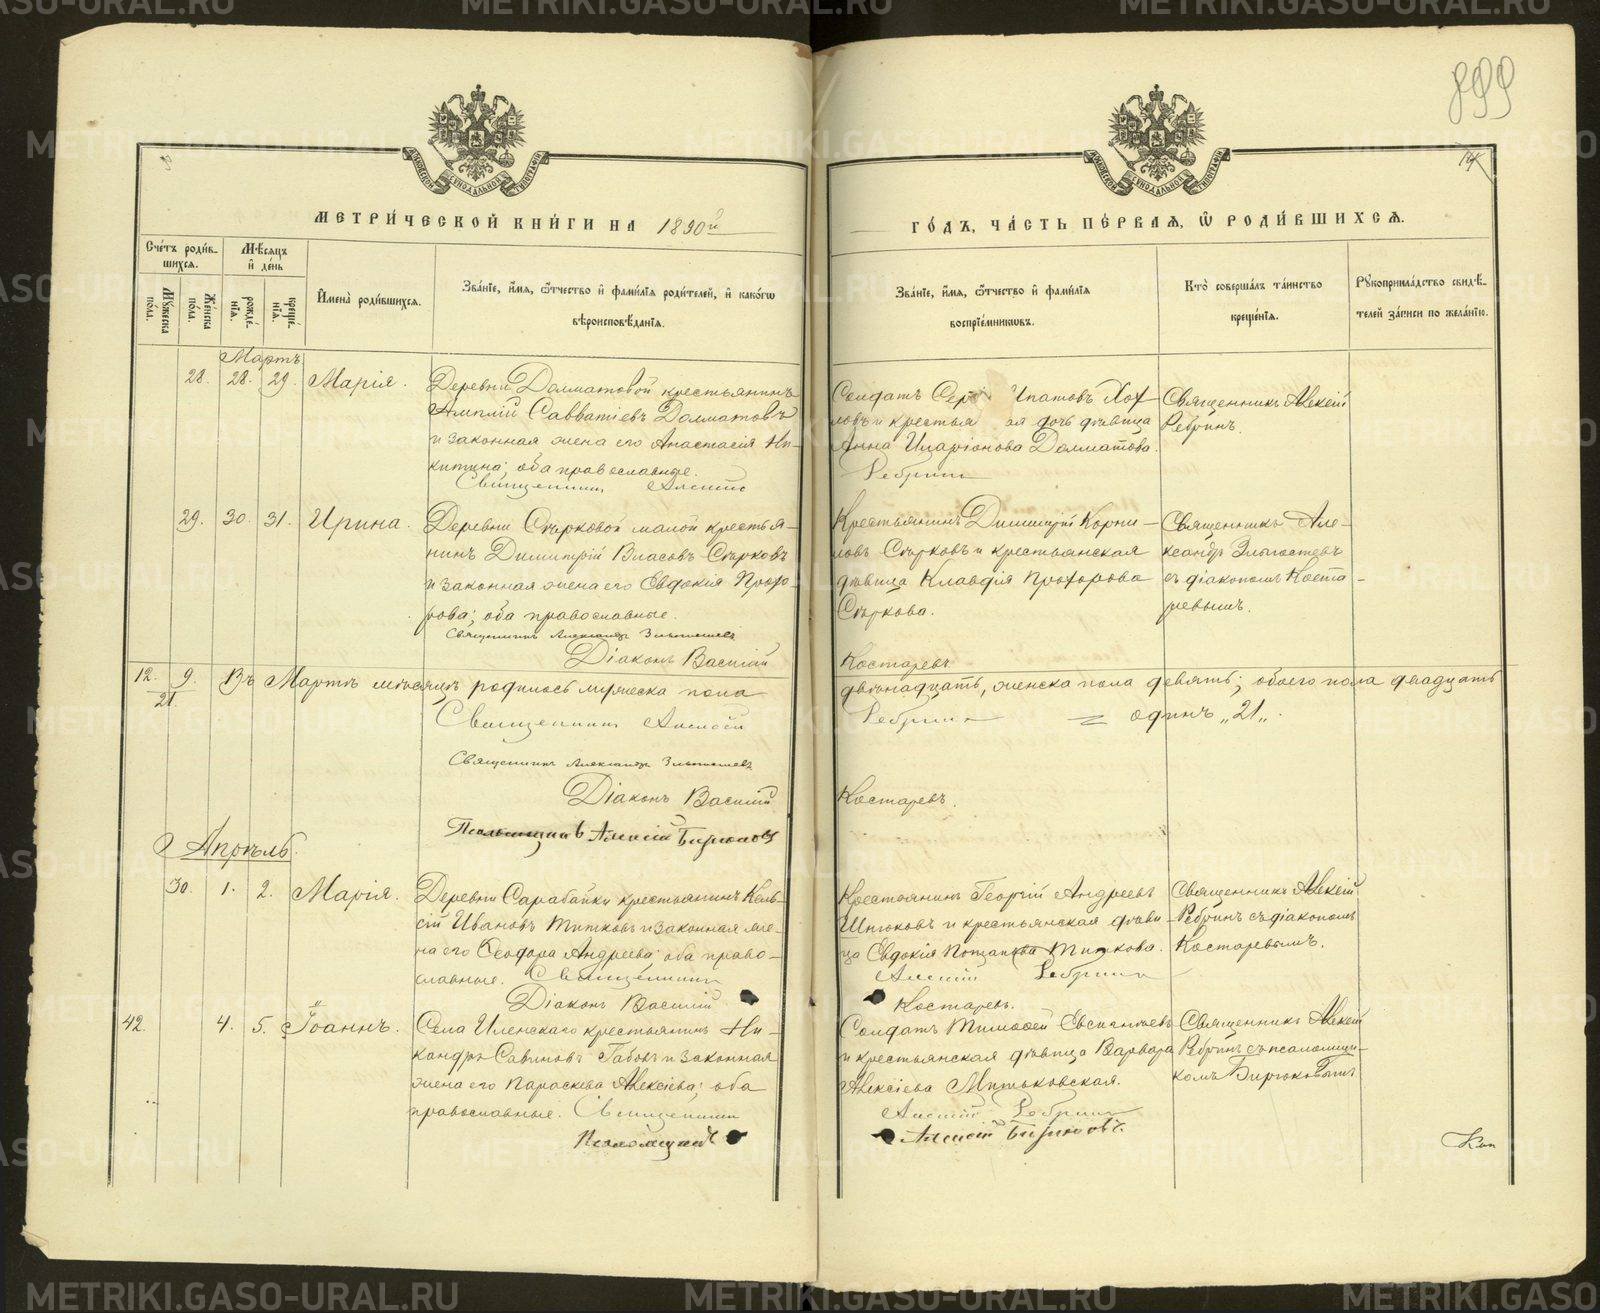 899
МЕТРИ́ЧЕСКОЙ КНИ́ГИ НА 1890й
ГО́ДЪ, ЧА́СТЬ ПЕ́РВАЯ, Ѡ РОДИ́ВШИХСЯ.
Сче́тъ роди́в-
шихся.
Мꙋжеска по́ла.
Же́нска по́ла.
Мѣ́сяцъ и де́нь
рожде́-
нїя.
креще́-
нїя.
Имена̀ роди́вшихся.
Зва́нїе, и́мя, ѻ҆́тчество и фами́лїя роди́телей, и како́гѡ
вѣроисповѣ́данїя.
Зва́нїе, и́мя, ѻ҆́тчество и фами́лїя
воспрїе́мникѡвъ.
Кто̀ соверша́лъ та́инство
креще́нїя.
Рꙋкоприкла́дство свидѣ́-
телей за́писи по жела́нїю.
Мартъ
28. 28. 29. Марія.
Деревни Долматовой крестьянинъ
Савватіевъ Долматовъ
и законная жена его Анастасія Ни-
китина; оба православные.
Священникъ Алексій
Солдатъ Ипатовъ
и крестья ая дочь дѣвица
Анна Иларіонова Долматова.
Ребринъ
Священникъ Алексій
Ребринъ.
29. 30. 31. Ирина.
Деревни Сѣрковой малой кресть я-
нинъ Димитрій Власовъ Сѣрковъ
и законная жена его Евдокія Прохо-
рова; оба православные.
Священникъ Александръ
Діаконъ Василій
Крестьянинъ Димитрій Корни-
ловъ Сѣрковъ и крестьянская
дѣвица Клавдія Прохорова
Сѣркова.
Костаревъ
Священникъ Але-
ксандръ
съ діакономъ Коста-
ревымъ.
12. 9.
21.
Въ Мартѣ мѣсяцѣ родилось мужеска пола
двѣнадцать, женска пола девять; обоего пола двадцать
одинъ „21„.
Священникъ Алексій
Ребринъ
Священникъ Александръ
Діаконъ Василій
Костаревъ.
Псаломщикъ Алексій Бирюковъ
Апрѣль
30. 1. 2. Марія.
Деревни Сарабайки крестьянинъ
Ивановъ Титковъ и законная же-
на его Ѳеодора Андреева; оба право-
славные. Священникъ
Діаконъ Василій
Крестьянинъ Георгій Андреевъ
и крестьянская дѣви-
ца Евдокія Титкова.
Алексій Ребринъ
Костаревъ.
Священникъ Алексій
Ребринъ съ діакономъ
Костаревымъ.
42. 4. 5. Іоаннъ.
Села Иленскаго крестьянинъ Ни-
кандръ Савиновъ Габовъ и законная
жена его Параскева Алексіева; оба
православные. Священникъ
Псаломщикъ
Солдатъ Тимоѳей Евсигніевъ
и крестьянская дѣвица Варвара
Алексіева Митьковская.
Алексій Ребринъ
Алексій Бирюковъ.
Священникъ Алексій
Ребринъ съ псаломщи-
комъ Бирюковымъ
METRIKI.GASO-URAL.RU